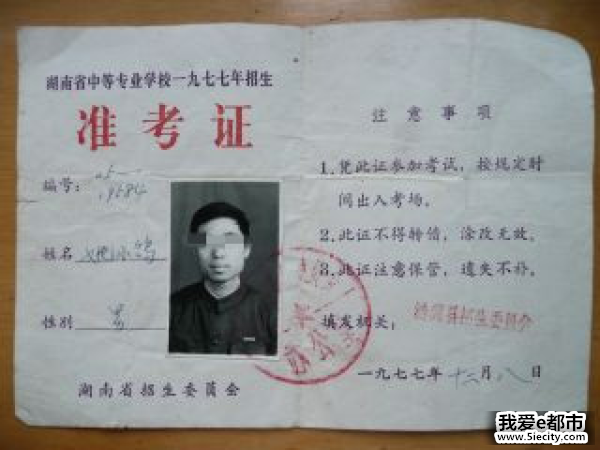 湖南省中等专业学校一九七七年招生
准考证
编号：
19684
姓名
性别 男
湖南省招生委员会
注意事项
1.凭此证参加考试，按规定时
间出入考场。
2.此证不得转借，涂改无效。
3.此证注意保管，遗失不补。
填发机关：
县招生委员会
办公
一九七七年十二月八日
我爱e都市
www.51ecity.com